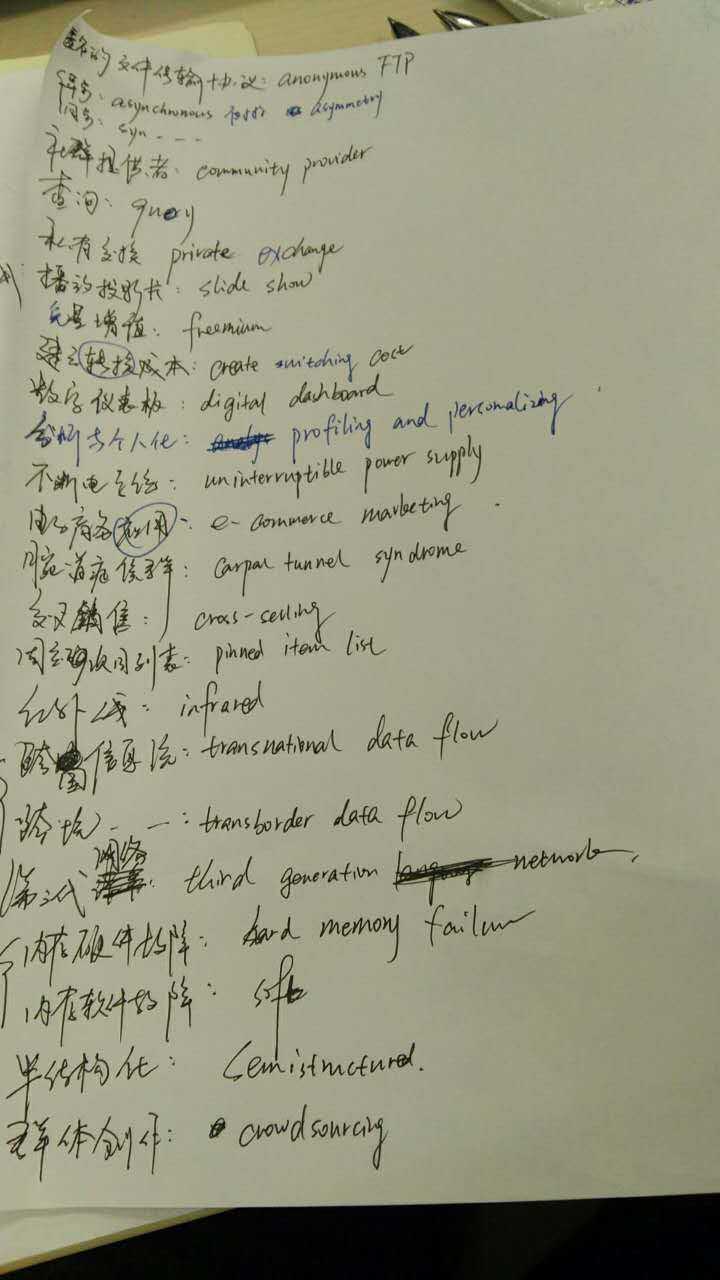 匿名的文件传输协议: anonymous FTP
异步: asynchronous asymmetry
同步: syn - - -
社群提供者: community provider
查询: query
私有交换 private exchange
播放投影片: slide show
免费增值: freemium
建立转换成本: create switching cost
数字仪表板: digital dashboard
分析与个人化: profiling and personalizing
不断电系统: uninterruptible power supply
电子商务应用: e-commerce marketing
腕道症候群: carpal tunnel syndrome
交叉销售: cross-selling
固定项目列表: pinned item list
红外线: infrared
跨国信息流: transnational data flow
跨境 - - : transborder data flow
第三代网络: third generation network
内存硬件故障: hard memory failure
内存软件故障: soft
半结构化: Semistructured.
群体创作: crowdsourcing